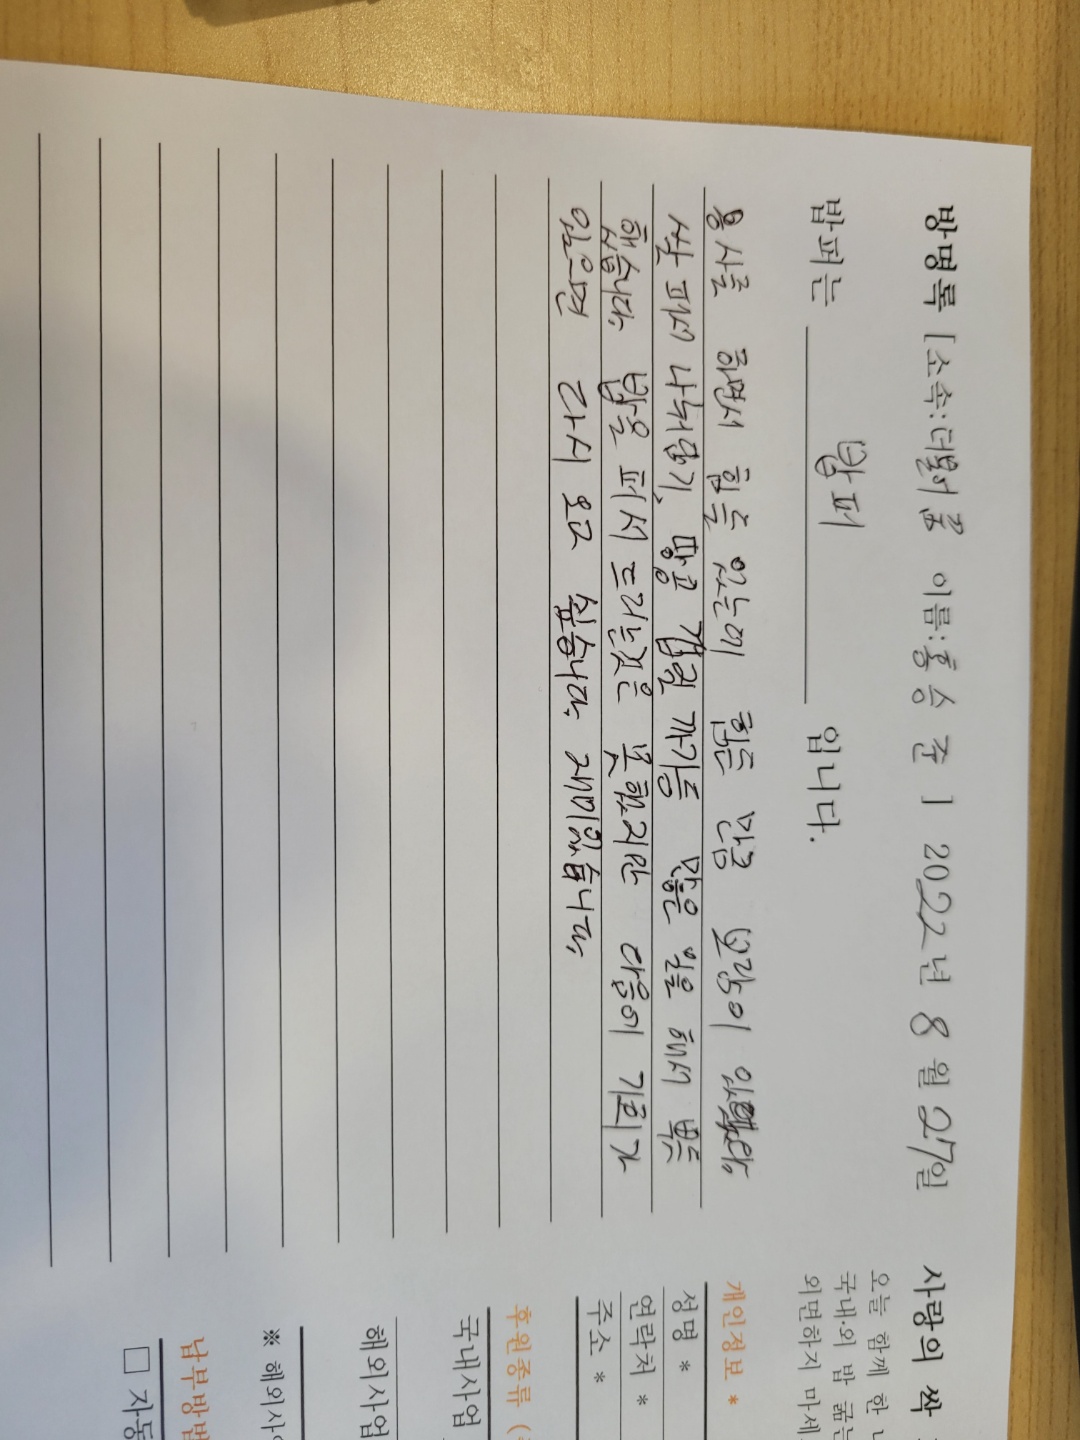 방명록 [소속:더불어꿈 이름:홍승준 ] 2022년 8월 27일
밥퍼는 밥퍼 입니다.
봉사를 하면서 힘든 있는데 힘든 만큼 보람이
쌀 퍼서 나눠담기, 땅콩 껍질 까기등 많은 일을 해서
했습니다. 밥을 퍼서 드리는것은 못했지만 다음에 기회가
있으면 다시 오고 싶습니다. 재미있습니다.
사랑의 싹
오늘 함께 한
국내·외 밥 굶는
외면하지 마세
개인정보 *
성명 *
연락처 *
주소 *
후원종류 (
국내사업
해외사업
※ 해외사
납부방법
□ 자동